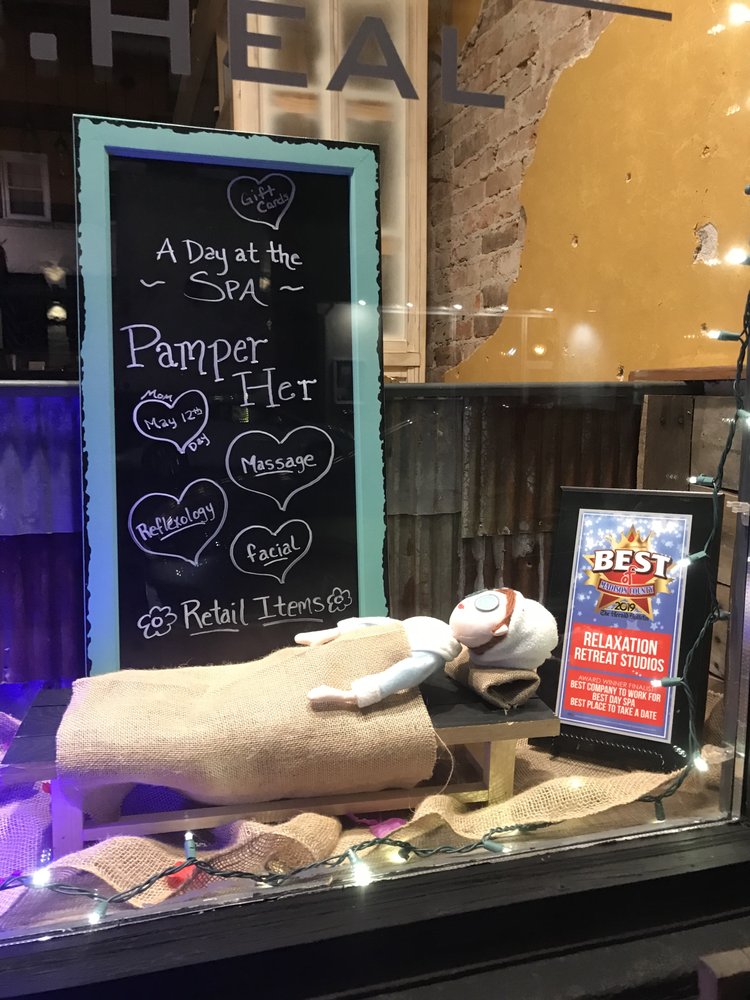 . HEAL
Gift
Cards
A Day at the
~ SPA ~
Pamper
Her
Mom
May 12th
Day
Massage
Reflexology
facial
Retail Items
BEST
of
MADISON COUNTY
2019
The Herald Bulletin
RELAXATION
RETREAT STUDIOS
AWARD WINNER FINALIST
BEST COMPANY TO WORK FOR
BEST DAY SPA
BEST PLACE TO TAKE A DATE